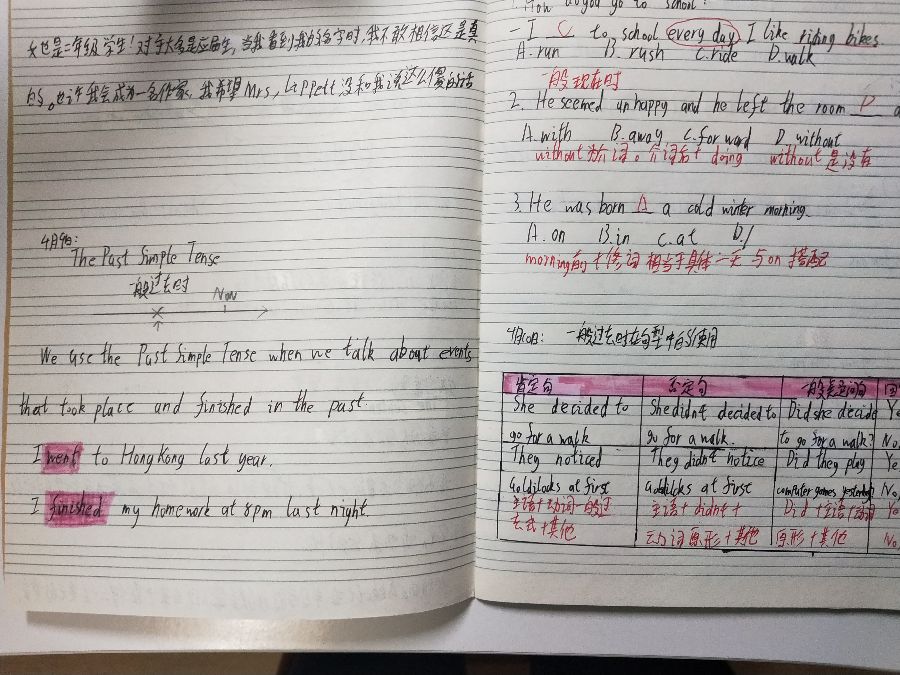 女也是二年级学生！对方大多是应届生，当我看到我的名字时，我不敢相信这是真
的。也许我会成为一名作家，我希望Mrs, Lippett没和我说这么僵的话
4月9日:
The Past Simple Tense
一般过去时
Now
We use the Past Simple Tense when we talk about events
that took place and finished in the past.
I went to Hong Kong last year.
I finished my homework at 8pm last night.
How do you go to school?
— I C to school every day I like riding bikes.
A. run B. rush C. ride D. walk
一般现在时
2. He seemed unhappy and he left the room D a
A. with B. away C. forward D. without
without为介词。介词后+doing without是没有
3. He was born A a cold winter morning.
A. on B. in C. at D. /
morning前+修词相当于具体一天 与on搭配
4月10日: 一般过去时在句型中的使用
肯定句 否定句 一般疑问句 回
She decided to She didn't decided to Did she decide Ye
go for a walk go for a walk. to go for a walk? No,
They noticed They didn't notice Did they play Ye
Goldilocks at first Goldilocks at first computer games yesterday? No,
主语+动词一般过 主语+didn't+ Did+主语+动词 Ye
去式+其他 动词原形+其他 原形+其他 No,